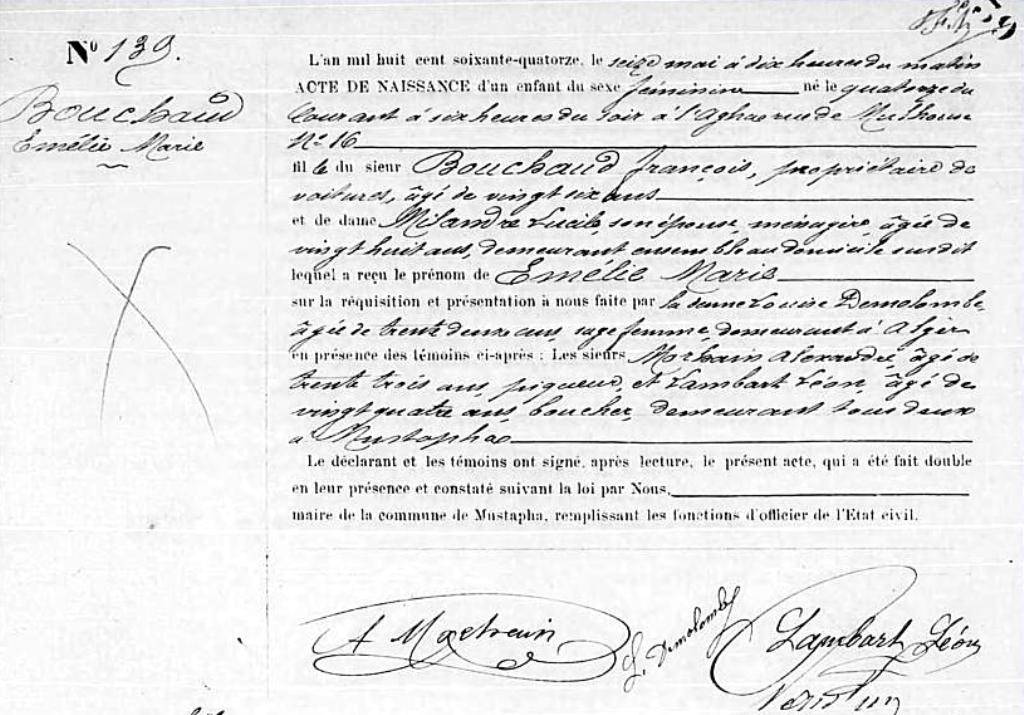 Nº 139.
Bouchaud
Emélie Marie
L'an mil huit cent soixante-quatorze, le seize mai à dix heures du matin
ACTE DE NAISSANCE d'un enfant du sexe féminin né le quatorze du
courant à six heures du soir à l'Agha rue de Mulhouse
Nº 16
fille du sieur Bouchaud françois, propriétaire de
voitures, âgé de vingt six ans
et de dame Milandre Lucile son épouse, ménagère, âgée de
vingt huit ans, demeurant ensemble au domicile susdit
lequel a reçu le prénom de Emélie Marie
sur la réquisition et présentation à nous faite par la dame Louise Demolombe
âgée de trente deux ans, sage femme, demeurant à Alger
en présence des témoins ci-après : Les sieurs alexandre, âgé de
trente trois ans, piqueur, et Lambart Léon, âgé de
vingt quatre ans boucher, demeurant tous deux
à Mustapha
Le déclarant et les témoins ont signé, après lecture, le présent acte, qui a été fait double
en leur présence et constaté suivant la loi par Nous,
maire de la commune de Mustapha, remplissant les fonctions d'officier de l'Etat civil.
A
L. Demolombe
Lambart Léon